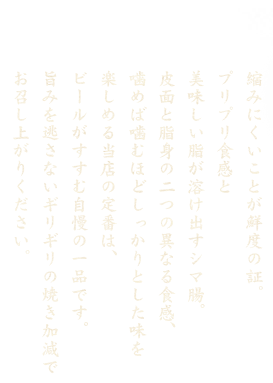 縮みにくいことが鮮度の証。
プリプリ食感と
美味しい脂が溶け出すシマ腸。
皮面と脂身の二つの異なる食感、
噛めば噛むほどしっかりとした味を
楽しめる当店の定番は、
ビールがすすむ自慢の一品です。
旨みを逃さないギリギリの焼き加減で
お召し上がりください。